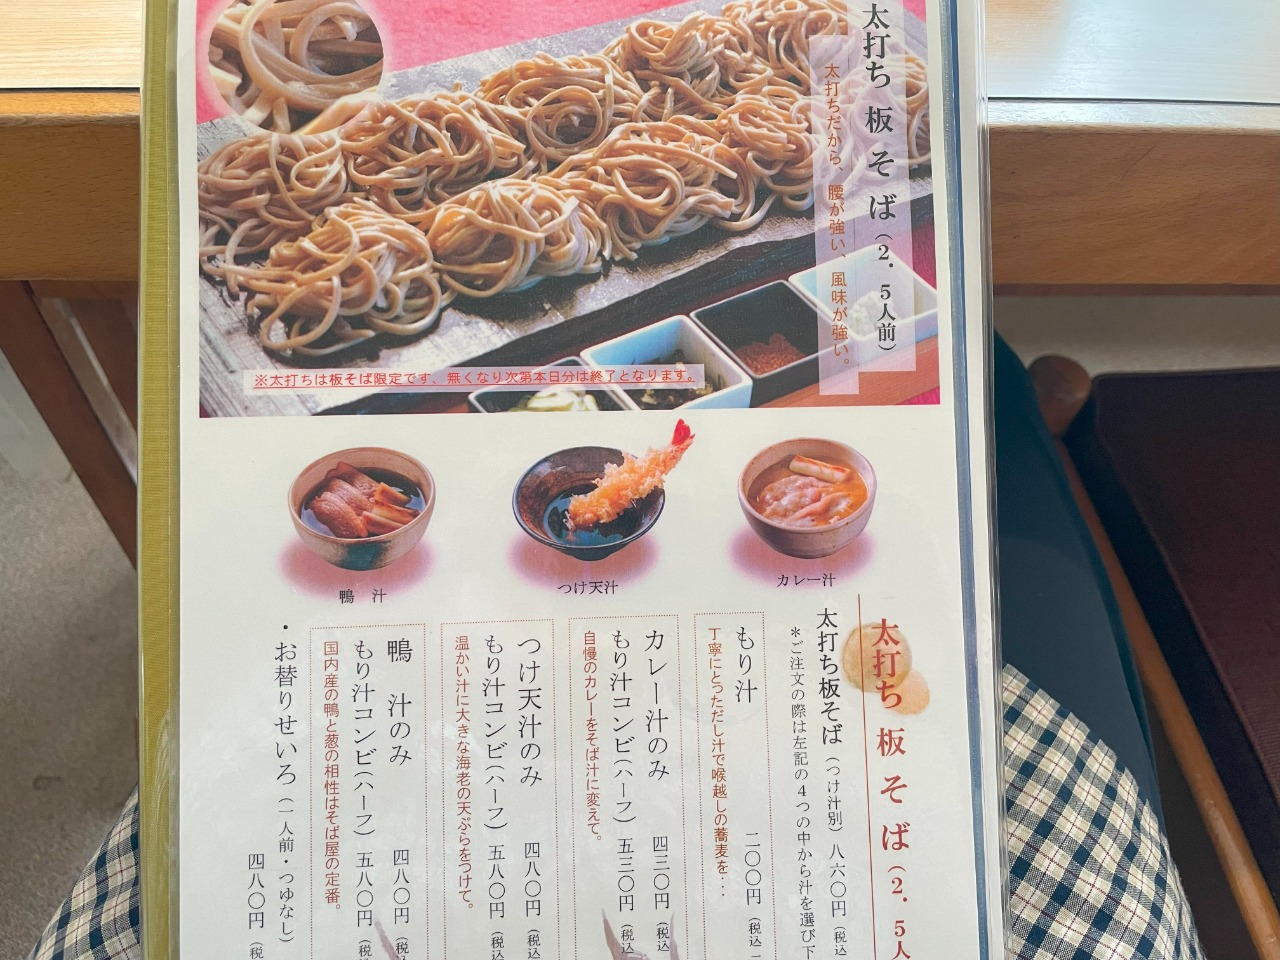 太打ち 板そば（2．5人前）
太打ちだから、腰が強い、風味が強い。
※太打ちは板そば限定です、無くなり次第本日分は終了となります。
鴨 汁
つけ天汁
カレー汁
太打ち 板そば（2．5人
太打ち板そば（つけ汁別） 八六〇円（税込
＊ご注文の際は左記の4つの中から汁を選び下
もり汁 二〇〇円（税込
丁寧にとっただし汁で喉越しの蕎麦を・・・
カレー汁のみ 四三〇円（税込
もり汁コンビ（ハーフ） 五三〇円（税込
自慢のカレーをそば汁に変えて。
つけ天汁のみ 四八〇円（税込
もり汁コンビ（ハーフ） 五八〇円（税込
温かい汁に大きな海老の天ぷらをつけて。
鴨 汁のみ 四八〇円（税込
もり汁コンビ（ハーフ） 五八〇円（税込
国内産の鴨と葱の相性はそば屋の定番。
・お替りせいろ（一人前・つゆなし）
四八〇円（税